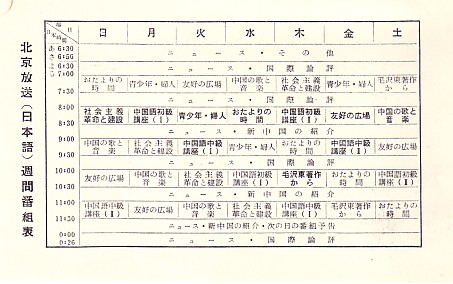 北京放送(日本語)週間番組表
日 月 火 水 木 金 土
あさよる
6:30 6:56 ニュース・その他
6:30 7:00 ニュース・国際論評
7:30 おたよりの時間 青少年・婦人 友好の広場 中国の歌と音楽 社会主義革命と建設 青少年・婦人 毛沢東著作から
8:00 ニュース・国際論評
8:30 社会主義革命と建設 中国語初級講座(Ⅰ) 青少年・婦人 おたよりの時間 中国語初級講座(Ⅰ) 友好の広場 中国の歌と音楽
9:00 ニュース・新中国の紹介
9:30 中国の歌と音楽 社会主義革命と建設 中国語中級講座(Ⅰ) 青少年・婦人 おたよりの時間 中国語中級講座(Ⅰ) 友好の広場
10:00 ニュース・国際論評
10:30 友好の広場 中国の歌と音楽 社会主義革命と建設 中国語初級講座(Ⅰ) 毛沢東著作から おたよりの時間 中国語初級講座(Ⅰ)
11:00 ニュース・新中国の紹介
11:30 中国語中級講座(Ⅰ) 友好の広場 中国の歌と音楽 社会主義革命と建設 中国語中級講座(Ⅰ) 毛沢東著作から おたよりの時間
ニュース・新中国の紹介・次の日の番組予告
0:00 0:26 ニュース・国際論評